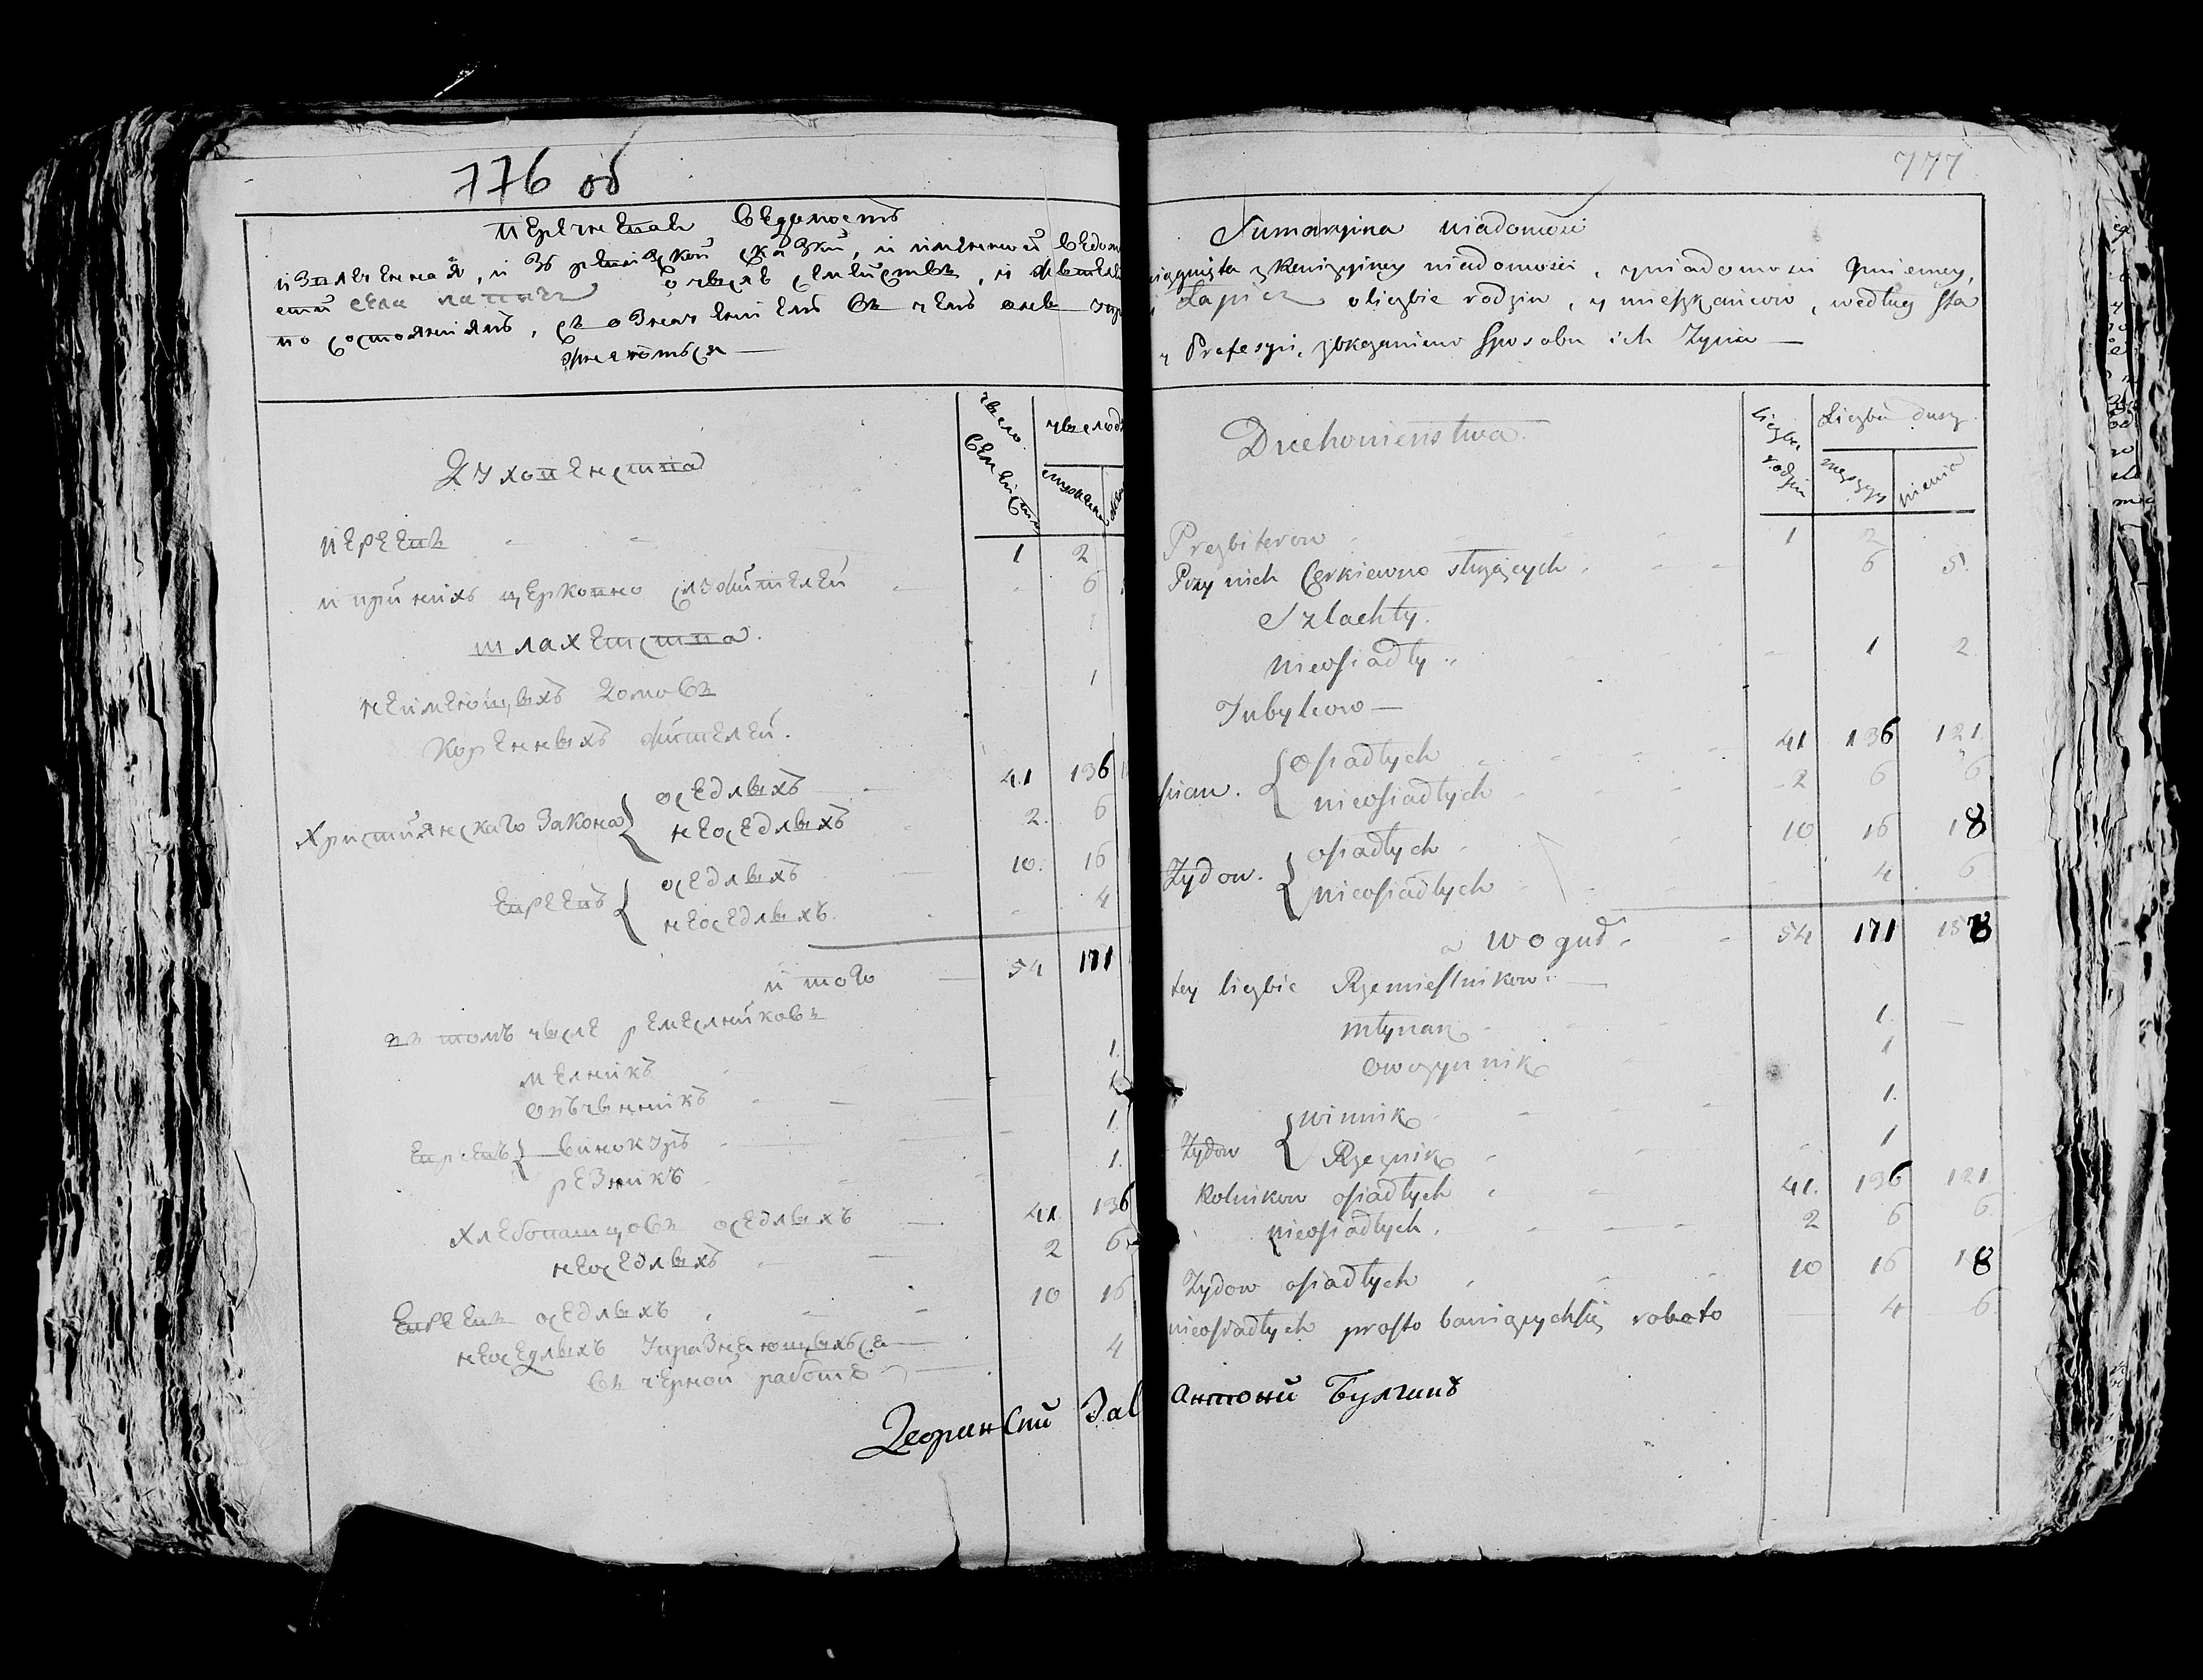 776 об
перечнепая вѣдомость
извлеченная, и зъ ревизской сказки, и именной вѣдом
сели лапичъ о числѣ семействъ, и жителе
по состоянiямъ, съ означенiемъ въ чемъ оне упр
жняются —
число семейства
число д
мужска
Духовенства
Иереевъ - - 1 2
и при нихъ церковно служителей - 6
шлахетства.
неимеющихъ домовъ 1
Коренныхъ жителей.
Христианскаго Закона { оседлыхъ 41 136
неоседлыхъ 2. 6
Евреевъ { оседлыхъ 10. 16
неоседлыхъ. 4
итого 54 171
въ томъ числе ремесниковъ
мелникъ 1.
овъчинникъ 1
Евреевъ } винокуръ 1.
резникъ 1.
хлебопашцовъ оседлыхъ 41. 136
неоседлыхъ 2 6
Евреевъ оседлыхъ 10 16
неоседлыхъ упразняющихъся
въ черной работе 4
777
Sumaryina wiadomość
z Rewizyiney wiadomości, y wiadomosci Jmienney,
Łapicz o liczbie rodzin, y mieszkańcow, według sta
y Profesyi, z okazaniem sposobu ich Zycia —
Liczba rodzin
Liczba dusz
męzczyz
Duchowieństwa.
Prezbiterow 1 2
Przy nich Cerkiewno służących 6 5.
Szlachty.
nieosiadły 1 2.
Jnbylcow —
{ Osiadłych 41 136 121
nieosiadłych 2 6 6
Zydow. { osiadłych 10 16 18
nieosiadłych 4 6
a wogud. 54 171 158
tey liczbie Rzemieslnikow: —
młynarz 1. —
owczynnik 1
Zydow { winnik 1.
Rzeznik 1
Rolnikow osiadłych 41. 136 121
nieosiadłych. 2 6 6.
Zydow osiadłych 10 16 18
nieosiadłych prosto bawiących się roboto 4 6
Антони Булгинъ